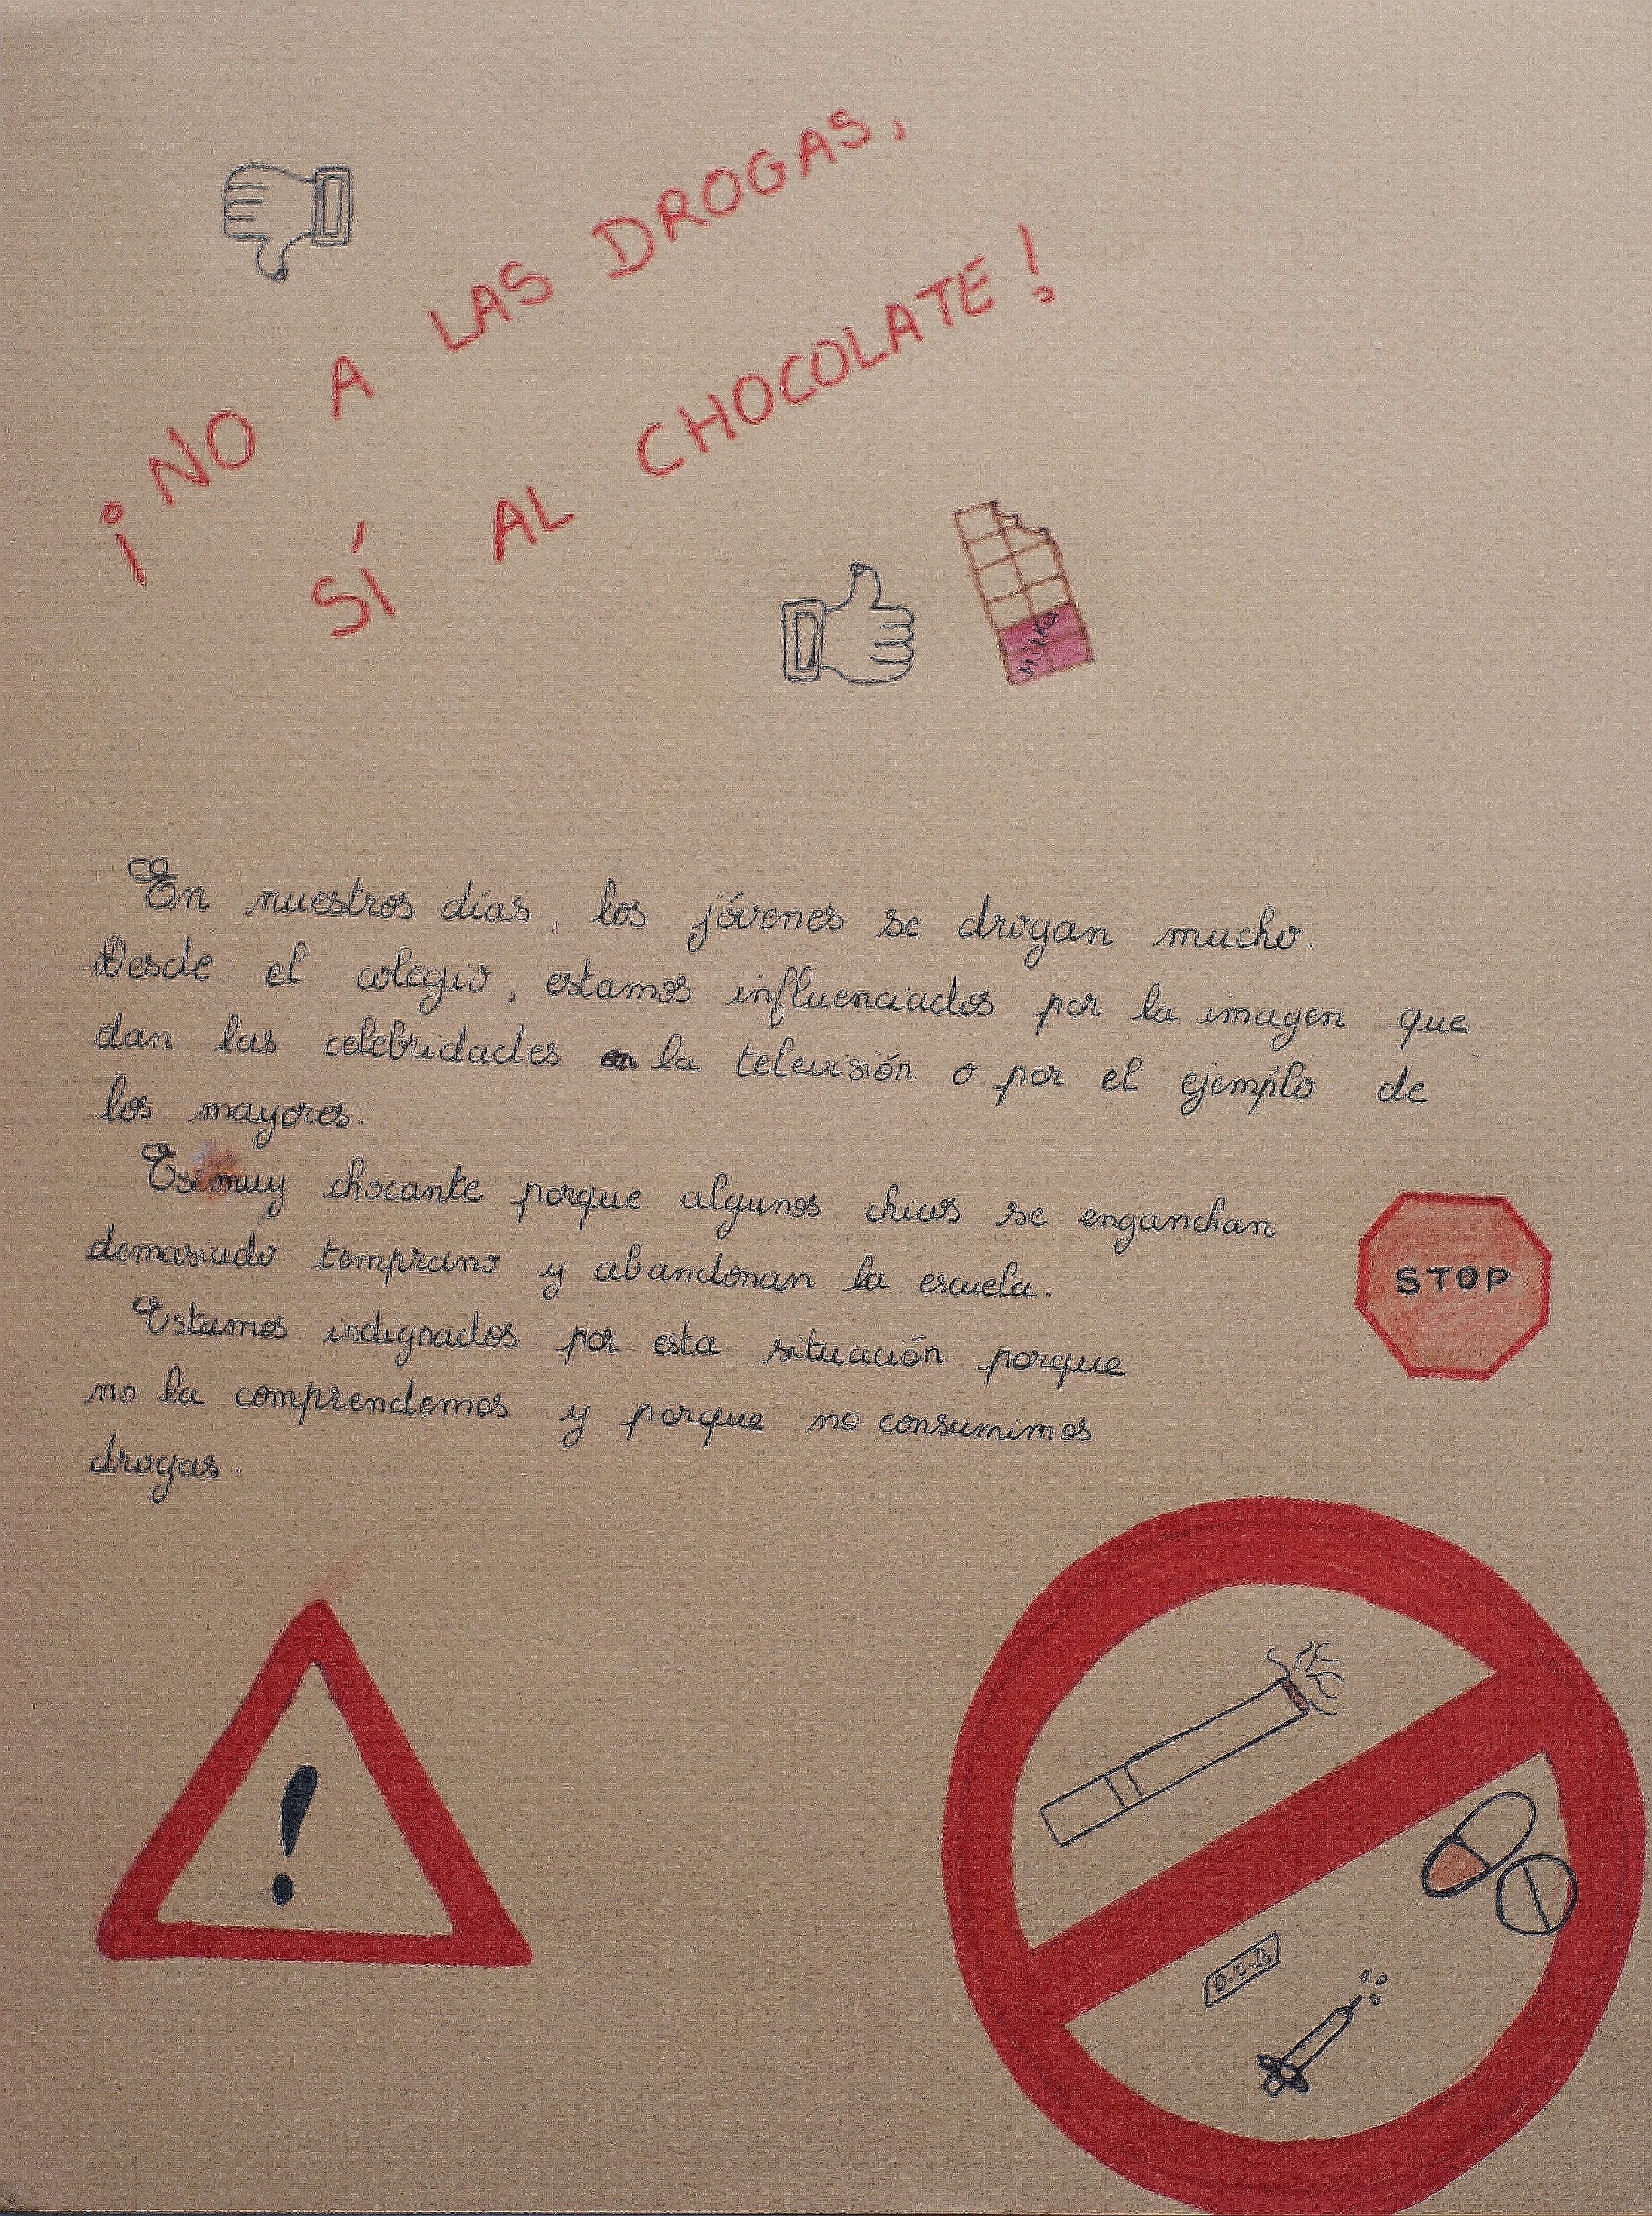 ¡NO A LAS DROGAS,
SÍ AL CHOCOLATE!
Milka
En nuestros días, los jóvenes se drogan mucho.
Desde el colegio, estamos influenciados por la imagen que
dan las celebridades en la televisión o por el ejemplo de
los mayores.
Es muy chocante porque algunos chicos se enganchan
demasiado temprano y abandonan la escuela.
STOP
Estamos indignados por esta situación porque
no la comprendemos y porque no consumimos
drogas.
!
O.C.B